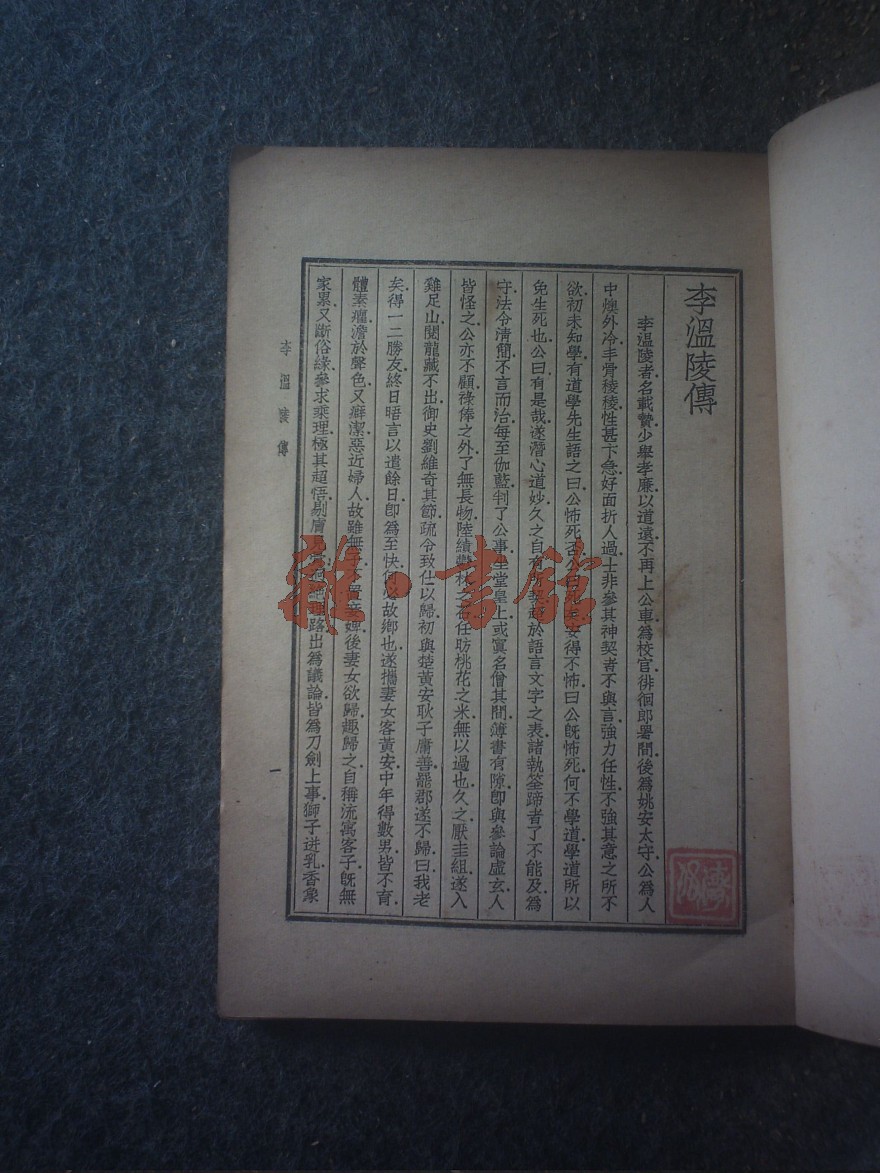 李溫陵傳
李溫陵者名載贄少舉孝廉以道遠不再上公車爲校官徘徊郎署間後爲姚安太守公爲人
中燠外冷丰骨稜稜性甚卞急好面折人過士非參其神契者不與言強力任性不強其意之所不
欲初未知學有道學先生語之曰公怖死否公曰死矣安得不怖曰公旣怖死何不學道學道所以
免生死也公曰有是哉遂潛心道妙久之自有所契超於語言文字之表諸執筌蹄者了不能及爲
守法令清簡不言而治每至伽藍判了公事坐堂皇上或寘名僧其間簿書有隙卽與參論虛玄人
皆怪之公亦不顧祿俸之外了無長物陸績鬱林之石任昉桃花之米無以過也久之厭圭組遂入
雞足山閱龍藏不出御史劉維奇其節疏令致仕以歸初與楚黃安耿子庸善罷郡遂不歸曰我老
矣得一二勝友終日晤言以遣餘日卽爲至快何必故鄉也遂攜妻女客黃安中年得數男皆不育
體素癯澹於聲色又癖潔惡近婦人故雖無子不置妾婢後妻女欲歸趣歸之自稱流寓客子旣無
家累又斷俗緣參求乘理極其超悟剔膚理路出爲議論皆爲刀劍上事獅子迸乳香象
李溫陵傳
一
雜·書館